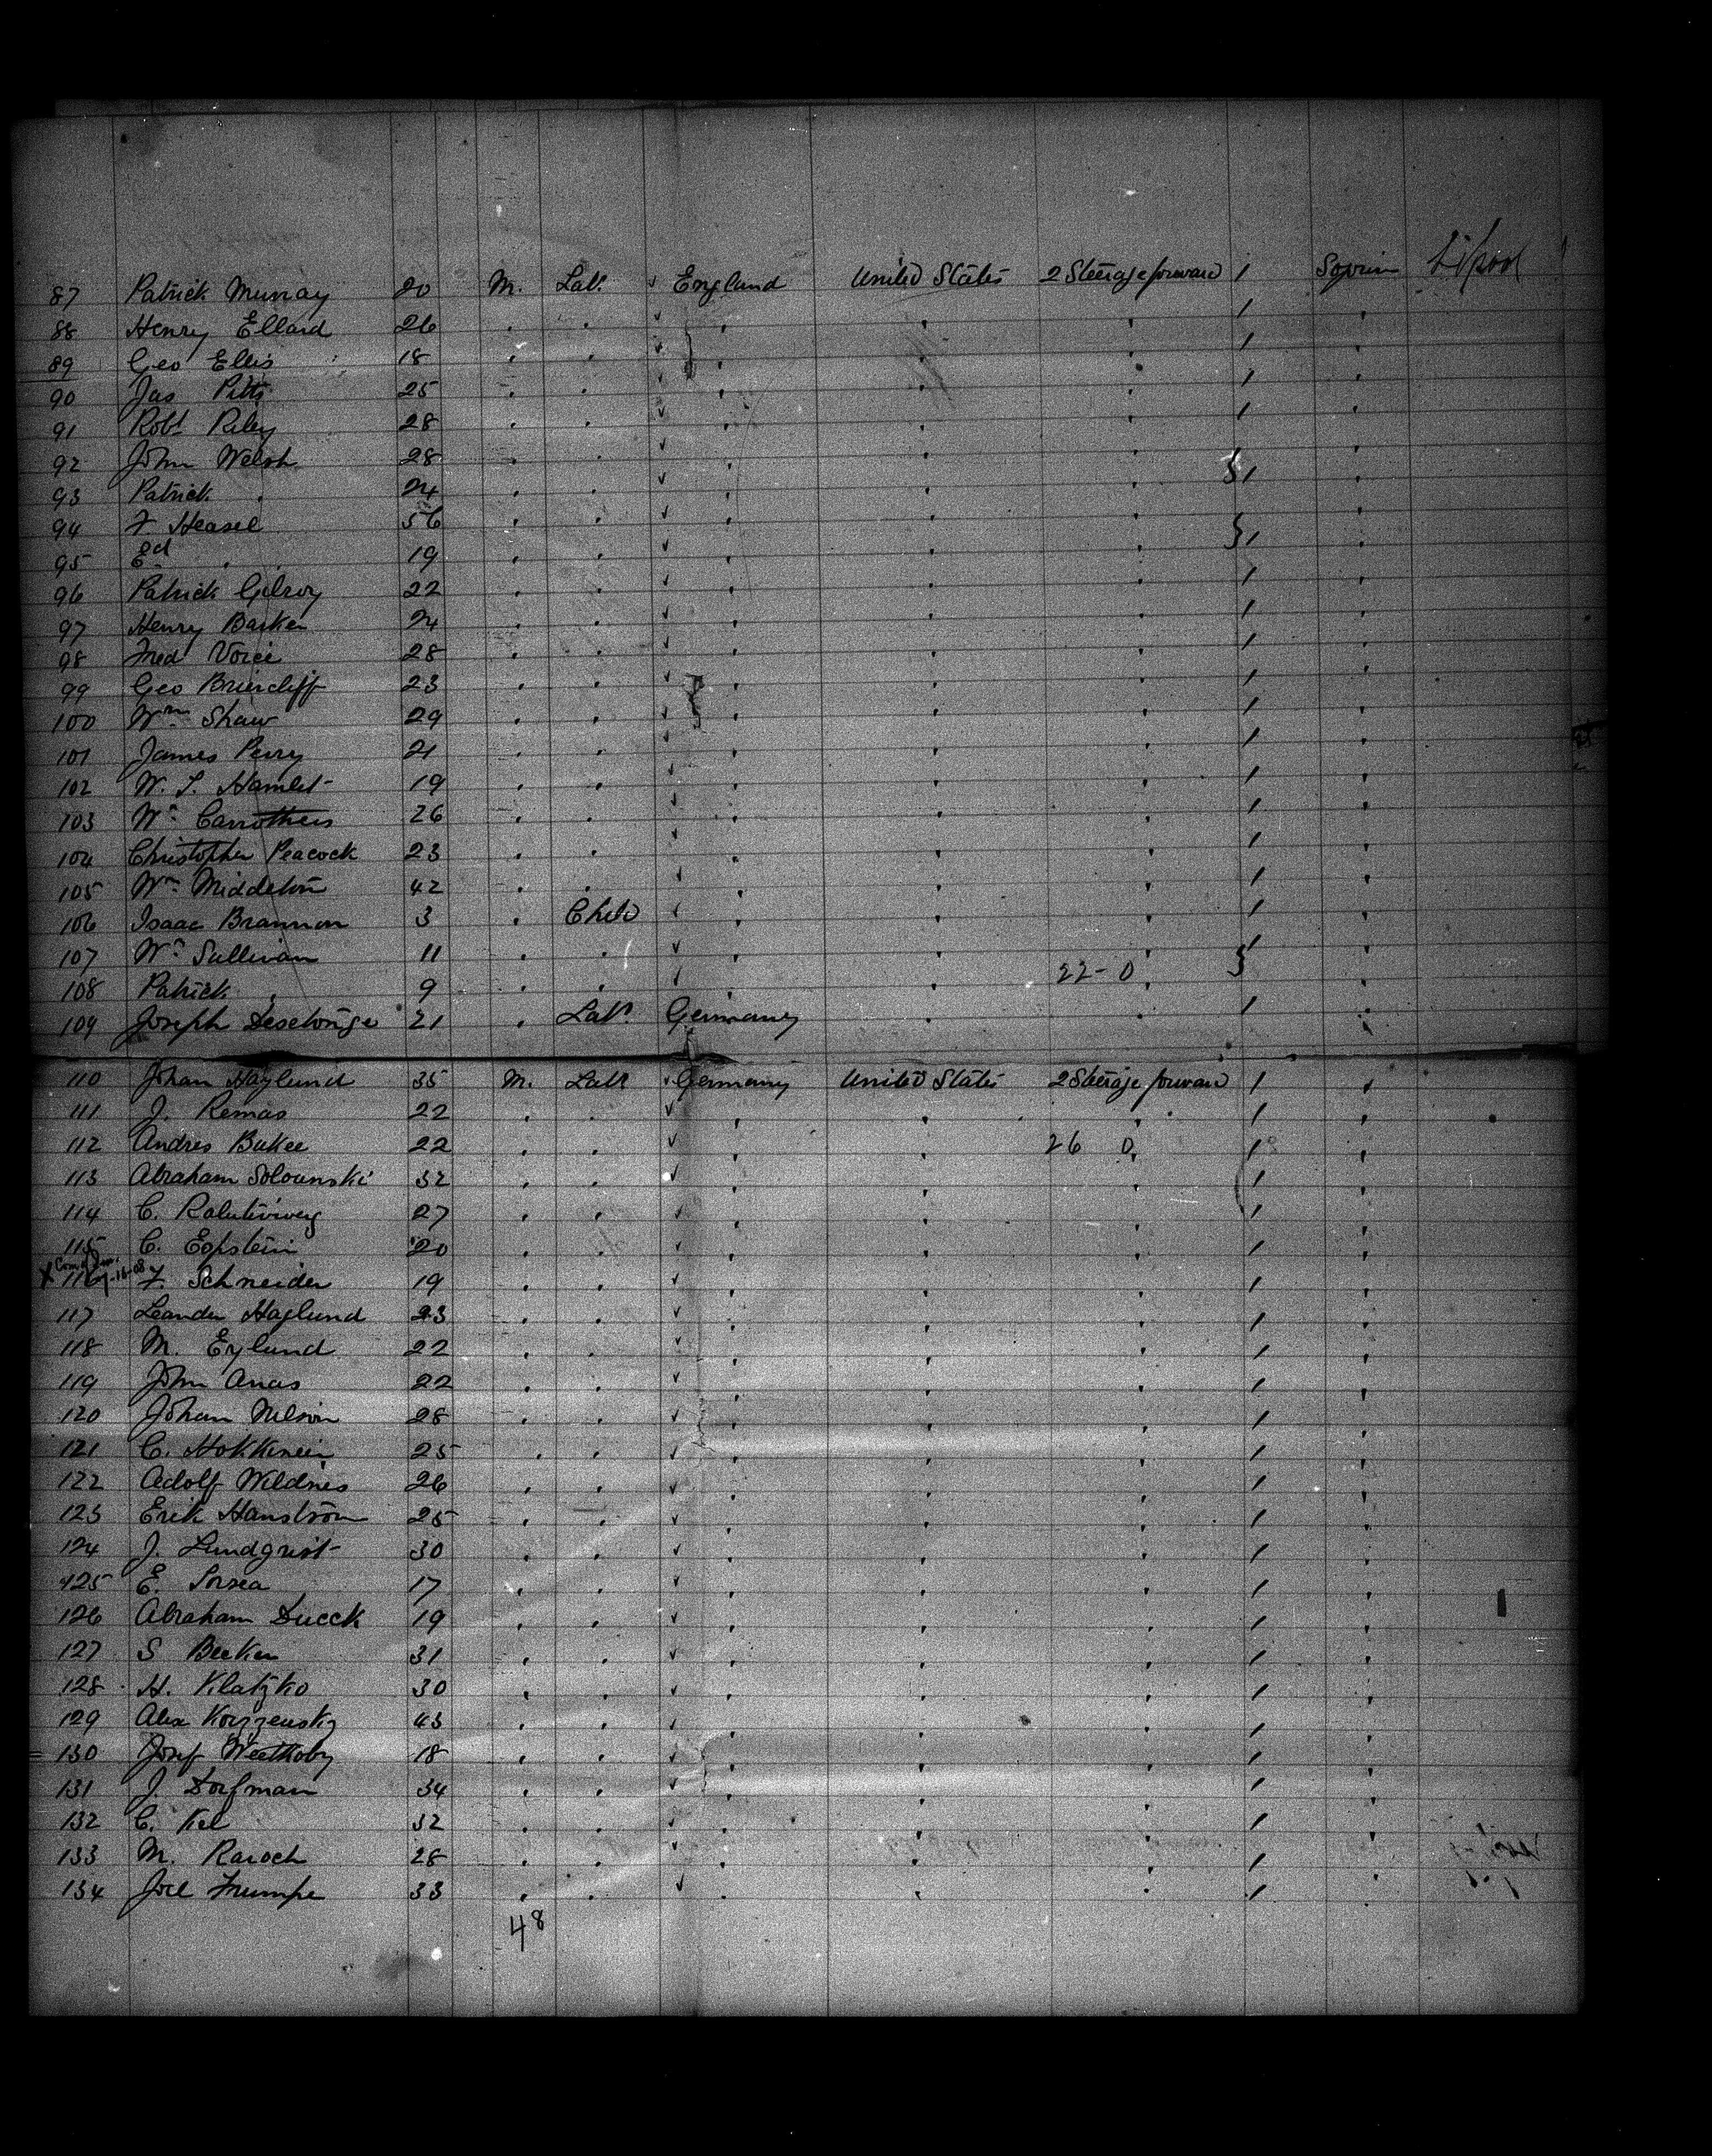 87 Patrick Murray 20 M. Lab. ✓ England United States 2 Steerage forward 1 Sojourn L'pool
88 Henry Ellard 26 " " ✓ " " " 1 "
89 Geo Ellis 18 " " ✓ " " " 1 "
90 Jas Pitts 25 " " ✓ " " " 1 "
91 Robt Riley 28 " " ✓ " " " 1 "
92 John Welsh 28 " " ✓ " " " "
93 Patrick " 24 " " ✓ " " " } 1 "
94 F Heasel 56 " " ✓ " " " "
95 Ed " 19 " " ✓ " " " } 1 "
96 Patrick Gilroy 22 " " ✓ " " " 1 "
97 Henry Barker 24 " " ✓ " " " 1 "
98 Fred Voice 28 " " ✓ " " " 1 "
99 Geo Briercliff 23 " " ✓ " " " 1 "
100 Wm Shaw 29 " " ✓ " " " 1 "
101 James Perry 21 " " ✓ " " " 1 "
102 W. S. Hamlet 19 " " ✓ " " " 1 "
103 Wm Carrothers 26 " " ✓ " " " 1 "
104 Christopher Peacock 23 " " ✓ " " " 1 "
105 Wm Middleton 42 " " ✓ " " " 1 "
106 Isaac Brannon 3 " Child ✓ " " " 1 "
107 Wm Sullivan 11 " " ✓ " " " 1 "
108 Patrick " 9 " " ✓ " " 22-0 " } "
109 Joseph 21 " Labr Germany " " 1 "
110 Johan Haglund 35 M. Labr ✓ Germany United States 2 Steerage forward 1 "
111 J. Remas 22 " " ✓ " " " 1 "
112 Andres Bakee 22 " " ✓ " " 26 0 " 1 "
113 Abraham Solounski 32 " " ✓ " " " 1 "
114 C. 27 " " ✓ " " " 1 "
115 C. Eppstein 20 " " ✓ " " " 1 "
X 116 F. Schneider 19 " " ✓ " " " 1 "
117 Leander Haglund 23 " " ✓ " " " 1 "
118 M. Erylund 22 " " ✓ " " " 1 "
119 John Anas 22 " " ✓ " " " 1 "
120 Johan Nelson 28 " " ✓ " " " 1 "
121 C. Hokkinein 25 " " ✓ " " " 1 "
122 Adolf Wildnes 26 " " ✓ " " " 1 "
123 Erik Hanström 25 " " ✓ " " " 1 "
124 J. Lundqrist 30 " " ✓ " " " 1 "
125 E. Sorsea 17 " " ✓ " " " 1 "
126 Abraham Ducck 19 " " ✓ " " " 1 "
127 S Becker 31 " " ✓ " " " 1 "
128 H. Klatzko 30 " " ✓ " " " 1 "
129 Alex 43 " " ✓ " " " 1 "
130 Josef 18 " " ✓ " " " 1 "
131 J. Dorfman 34 " " ✓ " " " 1 "
132 C. Kel 32 " " ✓ " " " 1 "
133 M. Raroch 28 " " ✓ " " " 1 "
134 Joel Trumpe 33 " " ✓ " " " 1 "
48